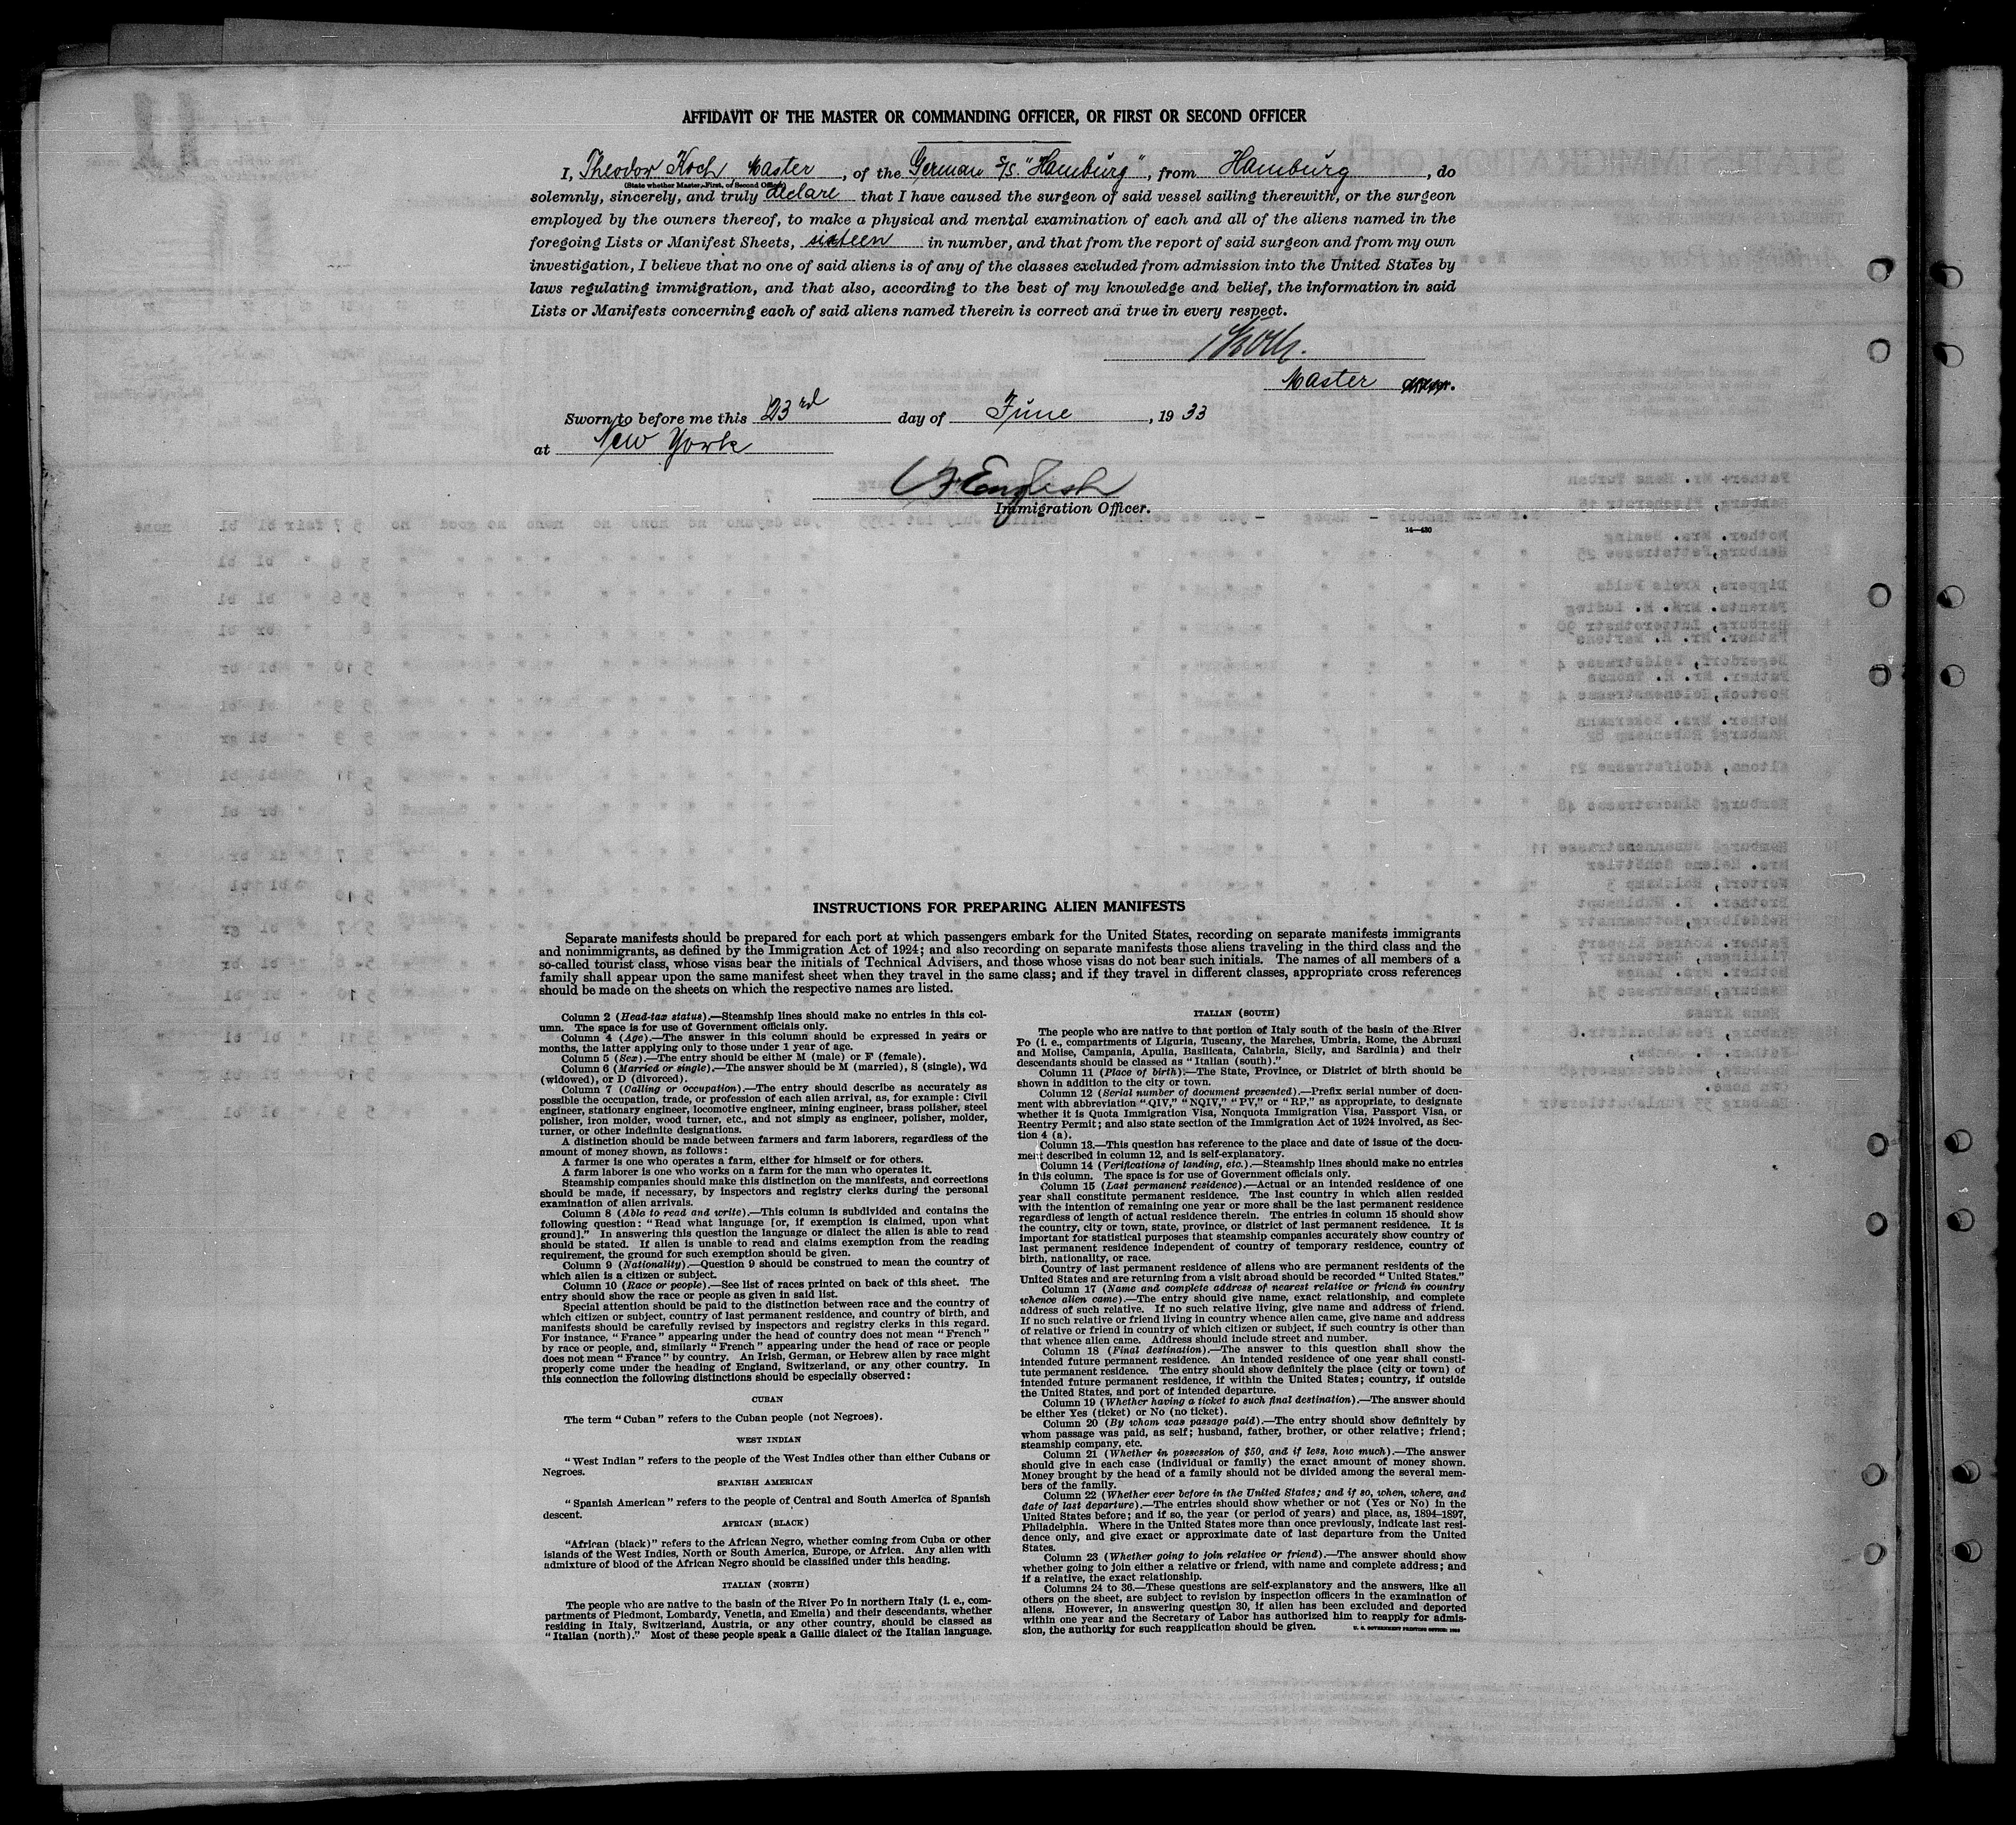 AFFIDAVIT OF THE MASTER OR COMMANDING OFFICER, OR FIRST OR SECOND OFFICER
I, Theodor Koch Master, of the German S/S. "Hamburg", from Hamburg, do
(State whether Master, First, or Second Officer)
solemnly, sincerely, and truly declare that I have caused the surgeon of said vessel sailing therewith, or the surgeon
employed by the owners thereof, to make a physical and mental examination of each and all of the aliens named in the
foregoing Lists or Manifest Sheets, sixteen in number, and that from the report of said surgeon and from my own
investigation, I believe that no one of said aliens is of any of the classes excluded from admission into the United States by
laws regulating immigration, and that also, according to the best of my knowledge and belief, the information in said
Lists or Manifests concerning each of said aliens named therein is correct and true in every respect.
Koch.
Master Officer.
Sworn to before me this 23rd day of June, 1933
at New York
English
Immigration Officer.
14—430
INSTRUCTIONS FOR PREPARING ALIEN MANIFESTS
Separate manifests should be prepared for each port at which passengers embark for the United States, recording on separate manifests immigrants
and nonimmigrants, as defined by the Immigration Act of 1924; and also recording on separate manifests those aliens traveling in the third class and the
so-called tourist class, whose visas bear the initials of Technical Advisers, and those whose visas do not bear such initials. The names of all members of a
family shall appear upon the same manifest sheet when they travel in the same class; and if they travel in different classes, appropriate cross references
should be made on the sheets on which the respective names are listed.
Column 2 (Head-tax status).—Steamship lines should make no entries in this col-
umn. The space is for use of Government officials only.
Column 4 (Age).—The answer in this column should be expressed in years or
months, the latter applying only to those under 1 year of age.
Column 5 (Sex).—The entry should be either M (male) or F (female).
Column 6 (Married or single).—The answer should be M (married), S (single), Wd
(widowed), or D (divorced).
Column 7 (Calling or occupation).—The entry should describe as accurately as
possible the occupation, trade, or profession of each alien arrival, as, for example: Civil
engineer, stationary engineer, locomotive engineer, mining engineer, brass polisher, steel
polisher, iron molder, wood turner, etc., and not simply as engineer, polisher, molder,
turner, or other indefinite designations.
A distinction should be made between farmers and farm laborers, regardless of the
amount of money shown, as follows:
A farmer is one who operates a farm, either for himself or for others.
A farm laborer is one who works on a farm for the man who operates it.
Steamship companies should make this distinction on the manifests, and corrections
should be made, if necessary, by inspectors and registry clerks during the personal
examination of alien arrivals.
Column 8 (Able to read and write).—This column is subdivided and contains the
following question: "Read what language [or, if exemption is claimed, upon what
ground]." In answering this question the language or dialect the alien is able to read
should be stated. If alien is unable to read and claims exemption from the reading
requirement, the ground for such exemption should be given.
Column 9 (Nationality).—Question 9 should be construed to mean the country of
which alien is a citizen or subject.
Column 10 (Race or people).—See list of races printed on back of this sheet. The
entry should show the race or people as given in said list.
Special attention should be paid to the distinction between race and the country of
which citizen or subject, country of last permanent residence, and country of birth, and
manifests should be carefully revised by inspectors and registry clerks in this regard.
For instance, "France" appearing under the head of country does not mean "French"
by race or people, and, similarly "French" appearing under the head of race or people
does not mean "France" by country. An Irish, German, or Hebrew alien by race might
properly come under the heading of England, Switzerland, or any other country. In
this connection the following distinctions should be especially observed:
CUBAN
The term "Cuban" refers to the Cuban people (not Negroes).
WEST INDIAN
"West Indian" refers to the people of the West Indies other than either Cubans or
Negroes.
SPANISH AMERICAN
"Spanish American" refers to the people of Central and South America of Spanish
descent.
AFRICAN (BLACK)
"African (black)" refers to the African Negro, whether coming from Cuba or other
islands of the West Indies, North or South America, Europe, or Africa. Any alien with
admixture of blood of the African Negro should be classified under this heading.
ITALIAN (NORTH)
The people who are native to the basin of the River Po in northern Italy (i. e., com-
partments of Piedmont, Lombardy, Venetia, and Emelia) and their descendants, whether
residing in Italy, Switzerland, Austria, or any other country, should be classed as
"Italian (north)." Most of these people speak a Gallic dialect of the Italian language.
ITALIAN (SOUTH)
The people who are native to that portion of Italy south of the basin of the River
Po (i. e., compartments of Liguria, Tuscany, the Marches, Umbria, Rome, the Abruzzi
and Molise, Campania, Apulia, Basilicata, Calabria, Sicily, and Sardinia) and their
descendants should be classed as "Italian (south)."
Column 11 (Place of birth).—The State, Province, or District of birth should be
shown in addition to the city or town.
Column 12 (Serial number of document presented).—Prefix serial number of docu-
ment with abbreviation "QIV," "NQIV," "PV," or "RP," as appropriate, to designate
whether it is Quota Immigration Visa, Nonquota Immigration Visa, Passport Visa, or
Reentry Permit; and also state section of the Immigration Act of 1924 involved, as Sec-
tion 4 (a).
Column 13.—This question has reference to the place and date of issue of the docu-
ment described in column 12, and is self-explanatory.
Column 14 (Verifications of landing, etc.).—Steamship lines should make no entries
in this column. The space is for use of Government officials only.
Column 15 (Last permanent residence).—Actual or an intended residence of one
year shall constitute permanent residence. The last country in which alien resided
with the intention of remaining one year or more shall be the last permanent residence
regardless of length of actual residence therein. The entries in column 15 should show
the country, city or town, state, province, or district of last permanent residence. It is
important for statistical purposes that steamship companies accurately show country of
last permanent residence independent of country of temporary residence, country of
birth, nationality, or race.
Country of last permanent residence of aliens who are permanent residents of the
United States and are returning from a visit abroad should be recorded "United States."
Column 17 (Name and complete address of nearest relative or friend in country
whence alien came).—The entry should give name, exact relationship, and complete
address of such relative. If no such relative living, give name and address of friend.
If no such relative or friend living in country whence alien came, give name and address
of relative or friend in country of which citizen or subject, if such country is other than
that whence alien came. Address should include street and number.
Column 18 (Final destination).—The answer to this question shall show the
intended future permanent residence. An intended residence of one year shall consti-
tute permanent residence. The entry should show definitely the place (city or town) of
intended future permanent residence, if within the United States; country, if outside
the United States, and port of intended departure.
Column 19 (Whether having a ticket to such final destination).—The answer should
be either Yes (ticket) or No (no ticket).
Column 20 (By whom was passage paid).—The entry should show definitely by
whom passage was paid, as self; husband, father, brother, or other relative; friend;
steamship company, etc.
Column 21 (Whether in possession of $50, and if less, how much).—The answer
should give in each case (individual or family) the exact amount of money shown.
Money brought by the head of a family should not be divided among the several mem-
bers of the family.
Column 22 (Whether ever before in the United States; and if so, when, where, and
date of last departure).—The entries should show whether or not (Yes or No) in the
United States before; and if so, the year (or period of years) and place, as, 1894–1897,
Philadelphia. Where in the United States more than once previously, indicate last resi-
dence only, and give exact or approximate date of last departure from the United
States.
Column 23 (Whether going to join relative or friend).—The answer should show
whether going to join either a relative or friend, with name and complete address; and
if a relative, the exact relationship.
Columns 24 to 36.—These questions are self-explanatory and the answers, like all
others on the sheet, are subject to revision by inspection officers in the examination of
aliens. However, in answering question 30, if alien has been excluded and deported
within one year and the Secretary of Labor has authorized him to reapply for admis-
sion, the authority for such reapplication should be given.
U. S. GOVERNMENT PRINTING OFFICE: